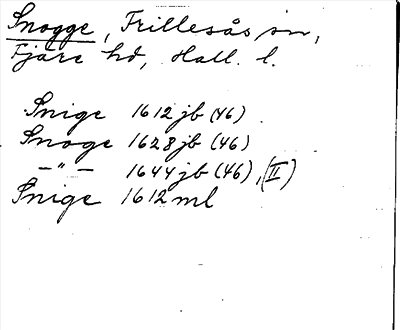 Snogge, Frillesås sn,
Fjäre hd, Hall. l.
Snige 1612 jb (46)
Snoge 1628 jb (46)
— " — 1644 jb (46), (II)
Snige 1612 ml